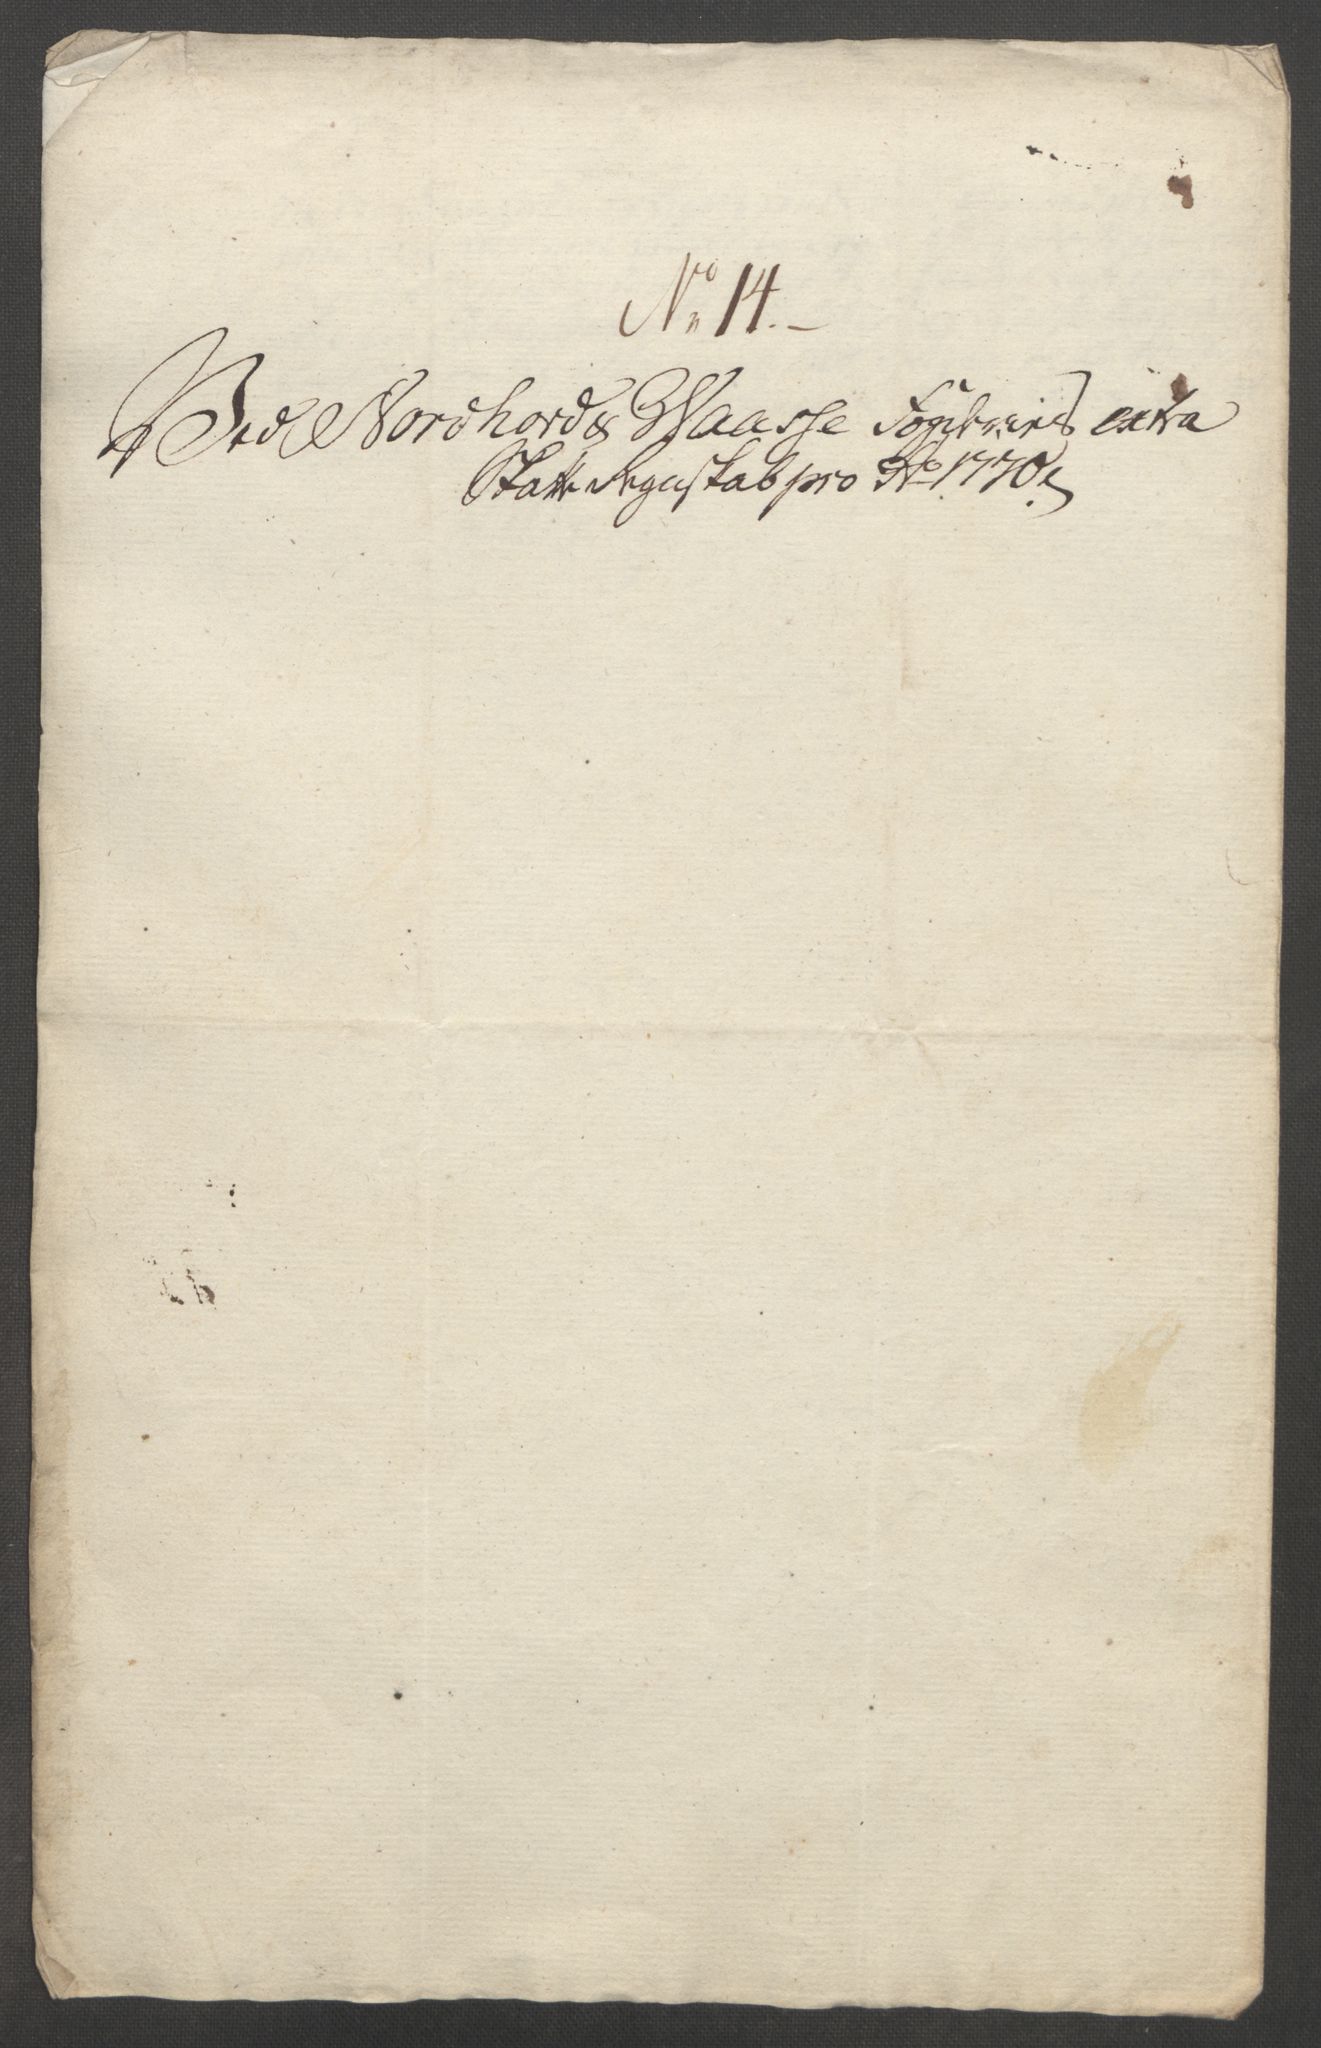 No 14.
Ved Nordhord & Waasse Fogderies extra
Skatte Regnskab pro Ao 1770.